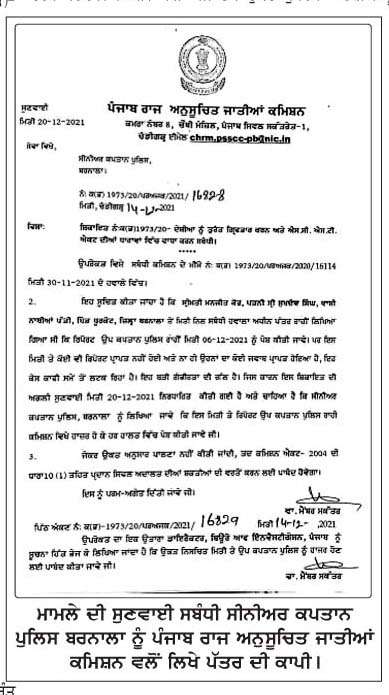 ਪੰਜਾਬ ਰਾਜ ਅਨੁਸੂਚਿਤ ਜਾਤੀਆਂ ਕਮਿਸ਼ਨ
ਕਮਰਾ ਨੰਬਰ 8, ਚੌਥੀ ਮੰਜ਼ਿਲ, ਪੰਜਾਬ ਸਿਵਲ ਸਕੱਤਰੇਤ-1,
ਚੰਡੀਗੜ੍ਹ ਈਮੇਲ chrm.psscc-pb@nic.in
ਸੁਣਵਾਈ
ਮਿਤੀ 20-12-2021
ਸੇਵਾ ਵਿਖੇ,
ਸੀਨੀਅਰ ਕਪਤਾਨ ਪੁਲਿਸ,
ਬਰਨਾਲਾ।
ਨੰ: ਕ(ਡ)1973/20/ਪਰਅਜ/2021/ 16828
ਮਿਤੀ, ਚੰਡੀਗੜ੍ਹ 14-12-2021
ਵਿਸ਼ਾ: ਸ਼ਿਕਾਇਤ ਨੰ:ਕ(ਡ)1973/20- ਦੋਸ਼ੀਆਂ ਨੂੰ ਤੁਰੰਤ ਗ੍ਰਿਫਤਾਰ ਕਰਨ ਅਤੇ ਐਸ.ਸੀ.ਐਸ.ਟੀ.
ਐਕਟ ਦੀਆਂ ਧਾਰਾਵਾਂ ਵਿੱਚ ਵਾਧਾ ਕਰਨ ਸਬੰਧੀ।
ਉਪਰੋਕਤ ਵਿਸ਼ੇ ਸਬੰਧੀ ਕਮਿਸ਼ਨ ਦੇ ਮੀਮੋ ਨੰ: ਕ(ਡ)1973/20/ਪਰਅਜ/2020/16114
ਮਿਤੀ 30-11-2021 ਦੇ ਹਵਾਲੇ ਵਿੱਚ।
2. ਇਹ ਸੂਚਿਤ ਕੀਤਾ ਜਾਂਦਾ ਹੈ ਕਿ ਸ਼੍ਰੀਮਤੀ ਮਨਜੀਤ ਕੌਰ, ਪਤਨੀ ਸ਼੍ਰੀ ਸੁਖਦੇਵ ਸਿੰਘ, ਵਾਸੀ
ਨਾਥੀਆਂ ਪੱਤੀ, ਪਿੰਡ ਧੂਰਕੋਟ, ਜ਼ਿਲ੍ਹਾ ਬਰਨਾਲਾ ਦੇ ਮਿਤੀ ਨਿਲ ਸਬੰਧੀ ਹਵਾਲਾ ਅਧੀਨ ਪੱਤਰ ਰਾਹੀਂ ਲਿਖਿਆ
ਗਿਆ ਸੀ ਕਿ ਰਿਪੋਰਟ ਉਪ ਕਪਤਾਨ ਪੁਲਿਸ ਰਾਹੀਂ ਮਿਤੀ 06-12-2021 ਨੂੰ ਪੇਸ਼ ਕੀਤੀ ਜਾਵੇ। ਪਰ ਇਸ
ਮਿਤੀ ਤੇ ਕੋਈ ਵੀ ਰਿਪੋਰਟ ਪ੍ਰਾਪਤ ਨਹੀਂ ਹੋਈ ਅਤੇ ਨਾ ਹੀ ਉਹਨਾਂ ਦਾ ਕੋਈ ਜਵਾਬ ਪ੍ਰਾਪਤ ਹੋਇਆ ਹੈ, ਇਹ
ਕੇਸ ਕਾਫੀ ਸਮੇਂ ਤੋਂ ਲਟਕ ਰਿਹਾ ਹੈ। ਇਹ ਬੜੀ ਗੰਭੀਰਤਾ ਦੀ ਗੱਲ ਹੈ। ਜਿਸ ਕਾਰਨ ਇਸ ਸ਼ਿਕਾਇਤ ਦੀ
ਅਗਲੀ ਸੁਣਵਾਈ ਮਿਤੀ 20-12-2021 ਨਿਰਧਾਰਿਤ ਕੀਤੀ ਗਈ ਹੈ ਅਤੇ ਚਾਹਿਆ ਹੈ ਕਿ ਸੀਨੀਅਰ
ਕਪਤਾਨ ਪੁਲਿਸ, ਬਰਨਾਲਾ ਨੂੰ ਲਿਖਿਆ ਜਾਵੇ ਕਿ ਇਸ ਮਿਤੀ ਤੇ ਰਿਪੋਰਟ ਉਪ ਕਪਤਾਨ ਪੁਲਿਸ ਰਾਹੀ
ਕਮਿਸ਼ਨ ਵਿਖੇ ਹਾਜ਼ਰ ਹੋ ਕੇ ਹਰ ਹਾਲਤ ਵਿੱਚ ਪੇਸ਼ ਕੀਤੀ ਜਾਵੇ ਜੀ।
3. ਜੇਕਰ ਉਕਤ ਅਨੁਸਾਰ ਪਾਲਣਾ ਨਹੀਂ ਕੀਤੀ ਜਾਂਦੀ, ਤਦ ਕਮਿਸ਼ਨ ਐਕਟ- 2004 ਦੀ
ਧਾਰਾ10 (1) ਤਹਿਤ ਪ੍ਰਦਾਨ ਸਿਵਲ ਅਦਾਲਤ ਦੀਆਂ ਸ਼ਕਤੀਆਂ ਦੀ ਵਰਤੋਂ ਕਰਨ ਲਈ ਪਾਬੰਦ ਹੋਵੇਗਾ।
ਇਸ ਨੂੰ ਪਰਮ-ਅਗੇਤ ਦਿੱਤੀ ਜਾਵੇ ਜੀ।
ਵਾ. ਮੈਂਬਰ ਸਕੱਤਰ
ਪਿੱਠ ਅੰਕਣ ਨੰ: ਕ(ਡ)-1973/20/ਪਰਅਜ/2021/ 16829 ਮਿਤੀ 14-12-,2021
ਉਪਰੋਕਤ ਦਾ ਇਕ ਉਤਾਰਾ ਡਾਇਰੈਕਟਰ, ਬਿਊਰੋ ਆਫ ਇੰਨਵੈਸਟੀਗੇਸ਼ਨ, ਪੰਜਾਬ ਨੂੰ
ਸੂਚਨਾ ਹਿੱਤ ਭੇਜ ਕੇ ਲਿਖਿਆ ਜਾਂਦਾ ਹੈ ਕਿ ਉਕਤ ਨਿਸਚਿਤ ਮਿਤੀ ਤੇ ਉਪ ਕਪਤਾਨ ਪੁਲਿਸ ਨੂੰ ਹਾਜ਼ਰ ਹੋਣ
ਲਈ ਪਾਬੰਦ ਕੀਤਾ ਜਾਵੇ ਜੀ।
ਵਾ. ਮੈਂਬਰ ਸਕੱਤਰ
ਮਾਮਲੇ ਦੀ ਸੁਣਵਾਈ ਸਬੰਧੀ ਸੀਨੀਅਰ ਕਪਤਾਨ
ਪੁਲਿਸ ਬਰਨਾਲਾ ਨੂੰ ਪੰਜਾਬ ਰਾਜ ਅਨੁਸੂਚਿਤ ਜਾਤੀਆਂ
ਕਮਿਸ਼ਨ ਵਲੋਂ ਲਿਖੇ ਪੱਤਰ ਦੀ ਕਾਪੀ।